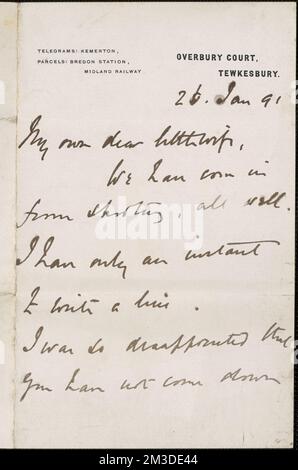 TELEGRAMS: KEMERTON,
PARCELS: BREDON STATION,
MIDLAND RAILWAY
OVERBURY COURT,
TEWKESBURY.
26. Jan 91
My own dear little wife,
We have come in
from shooting, all well.
I have only an instant
to write a line.
I was so disappointed that
you have not come down
alamy
Image ID: 2M3DE44
www.alamy.com